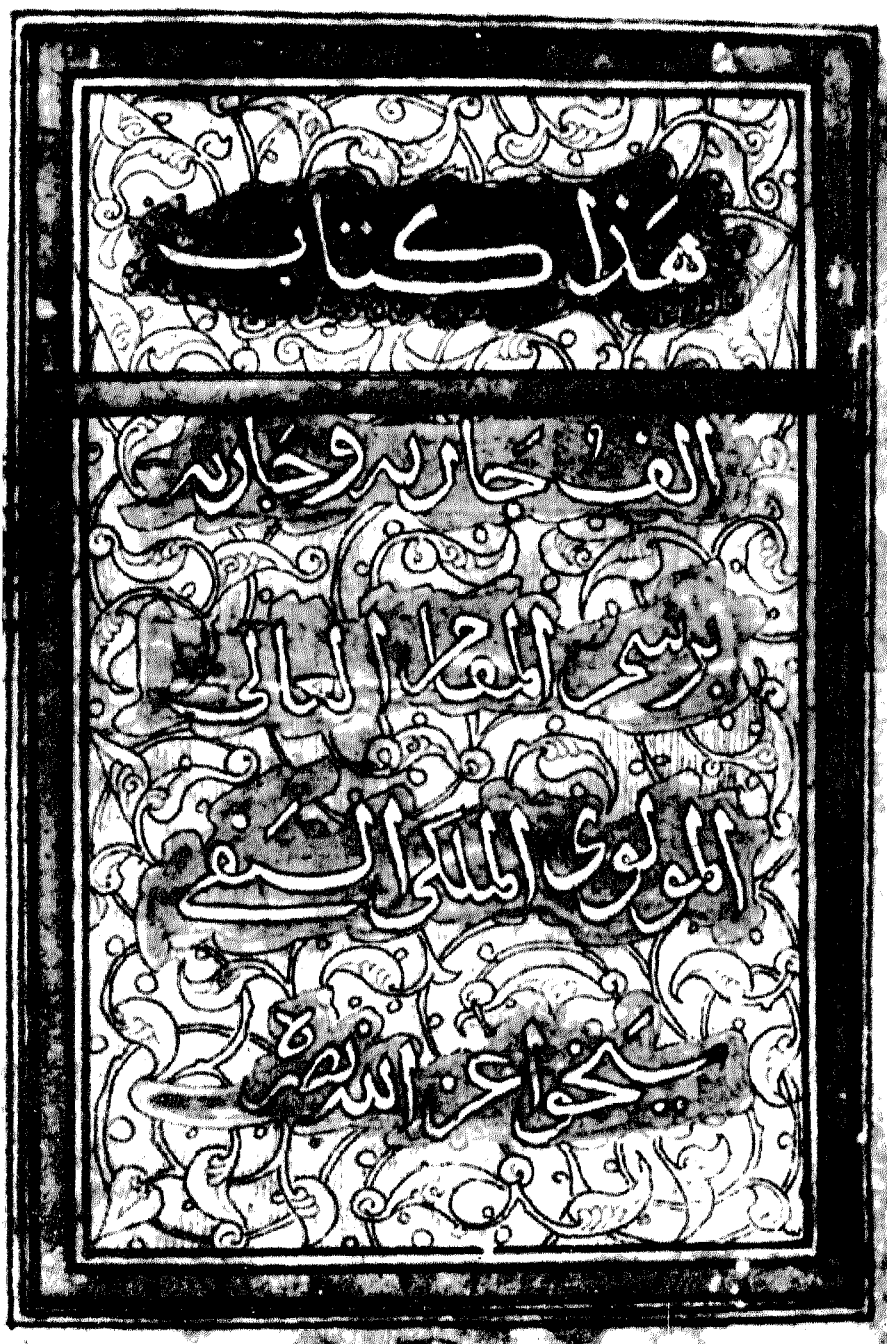 هَذا كتاب
الف جَاريه وجَاريه
برسم المقام العالى
المولوى الملكى السيفى
يشبكوا عز الله نصره